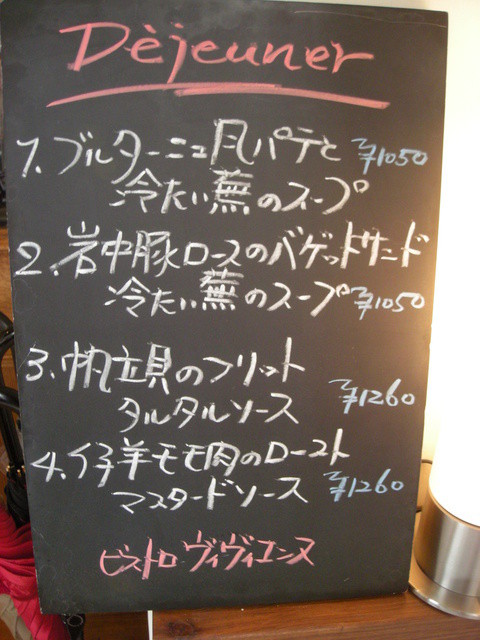 Dèjeuner
1. ブルターニュ風パテと ¥1050
冷たい蕪のスープ
2. 岩中豚ロースのバゲットサンド
冷たい蕪のスープ ¥1050
3. 帆立貝のフリット
タルタルソース ¥1260
4. 仔羊モモ肉のロースト
マスタードソース ¥1260
ビストロ ヴィヴィエンヌ